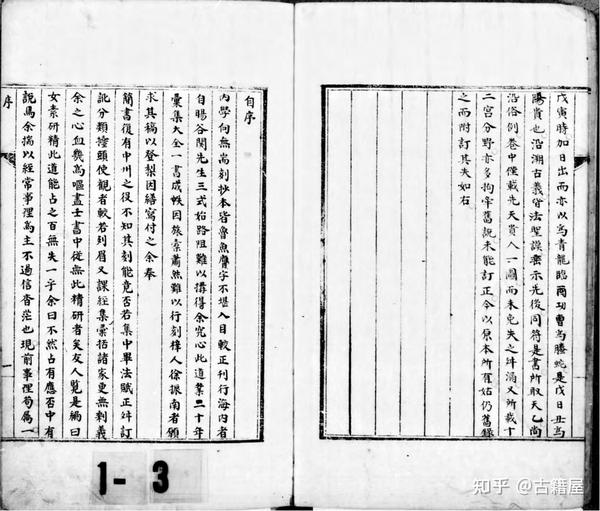 戊寅時加日出而亦以為青龍臨酉功曹為螣蛇是戊日丑為
陽貴也沿溯古義背法聖謨密示先後同符是書所取天乙尚
沿俗例卷中僅載先天貴人一圖而未免失之舛漏又所載十
二宮分野亦多拘牽舊說未能訂正今以原本所有姑仍舊錄
之而附訂其失如右
自序
內學向無尚刻抄本皆魯魚膺字不堪入目較正刊行海內者
自暘谷閔先生三式始路阻難以購得余究心此道業二十年
彙集大全一書成帙因旅橐蕭然難以行刻樟人徐振南者願
求其稿以登梨因繕寫付之余奉
簡書復有中州之役不知其刻能竟否若集中畢法賦正舛訂
訛分類擡頭使觀者較若列眉又課經集彙括諸家更無剩義
余之心血幾為嘔盡壬書中從無此精研者矣友人覽是編曰
女素研精此道能占之百無失一乎余曰不然占有應否中有
說焉余以經常事理為主不過信杳茫也現前事理苟屬一
序
1-3
知乎 @古籍屋